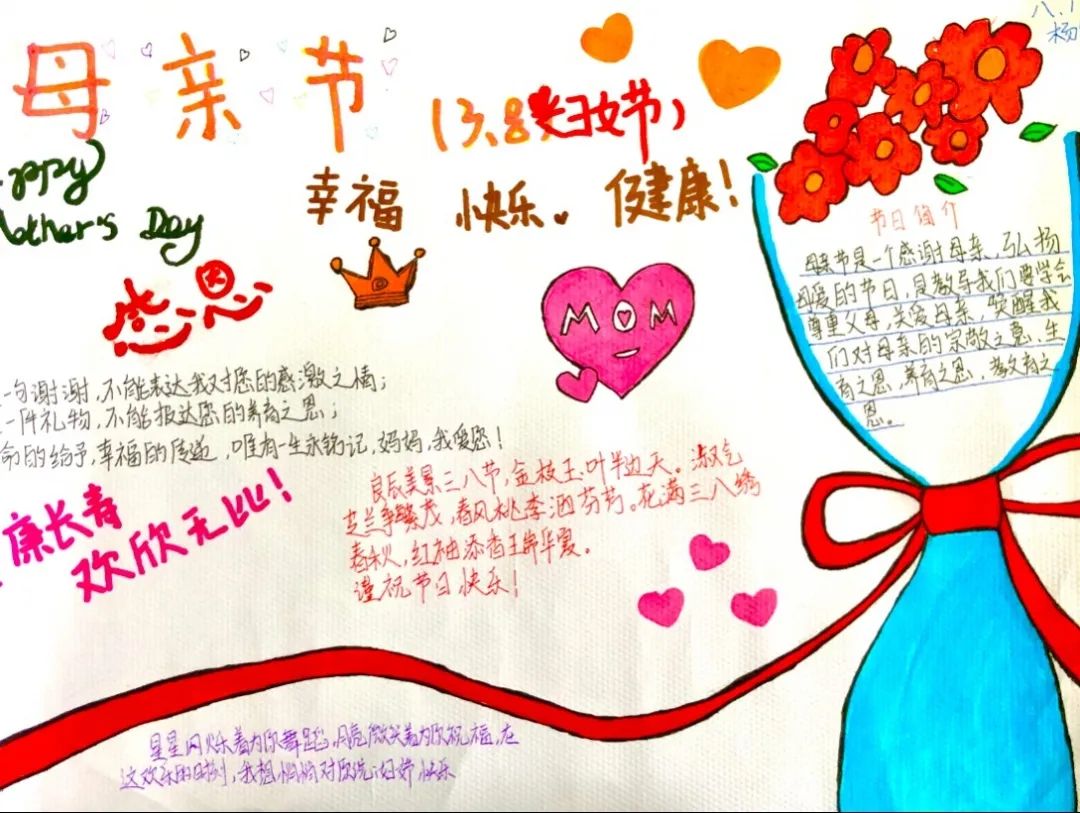 母亲节
(3.8妇女节)
Happy
Mother's Day
幸福 快乐. 健康!
感恩
MOM
一句谢谢,不能表达我对您的感激之情;
一件礼物,不能报达您的养育之恩;
命的给予,幸福的传递,唯有一生永铭记,妈妈,我爱您!
康长青
欢欣无比!
良辰美景三八节,金枝玉叶半边天。淑气
芝兰争繁茂,春风桃李洒芬芳。花满三八绣
春秋,红袖添香 华夏。
谨祝节日快乐!
星星闪烁着为你舞蹈,月亮微笑着为你祝福,在
这欢乐的时刻,我想悄悄对你说:妇女节快乐
八.1
杨
节日简介
母亲节是一个感谢母亲,弘扬
母爱的节日,是教导我们要学会
尊重父母,关爱母亲,唤醒我
们对母亲的崇敬之意、生
育之恩,养育之恩、教育之
恩。